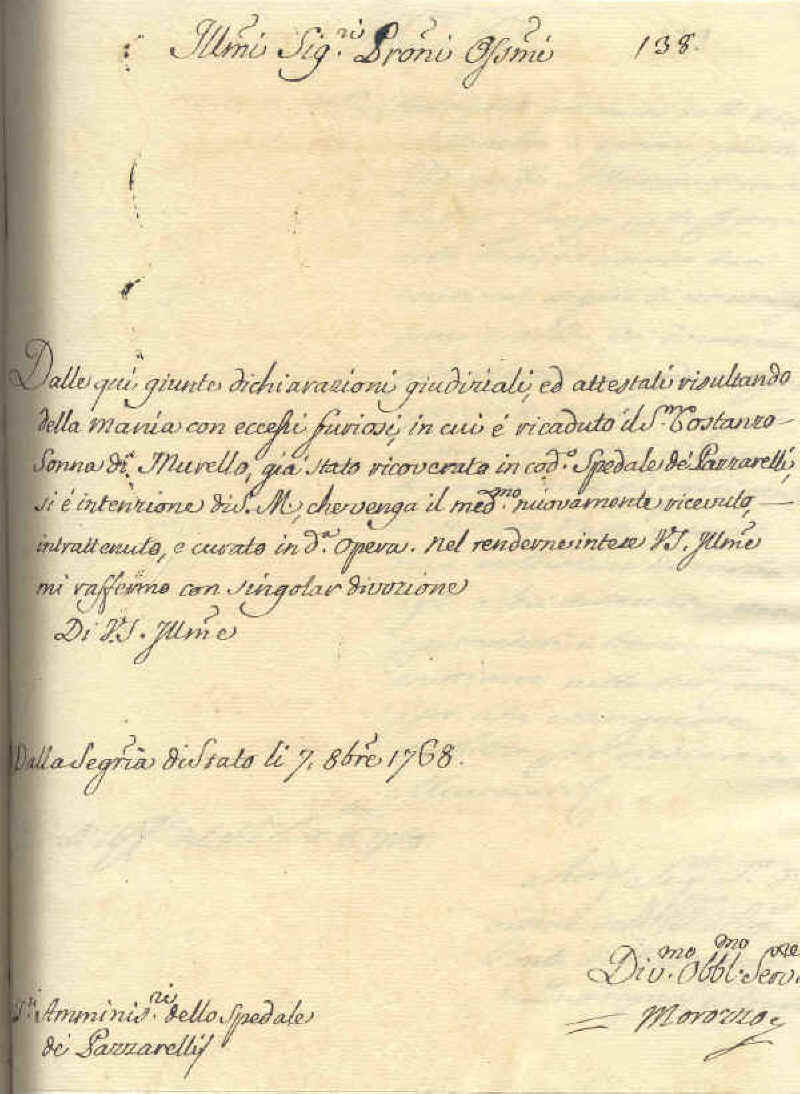 Illmi Sig.ri Proni Ossmi 138.
Dalle qui giunte dichiarazioni giudiziali, ed attestati risultando
della mania con eccessi furiosi, in cui é ricaduto il S.r Costanzo
Sonna di Murello, giá stato ricoverato in cod.o Spedale de' Pazzarelli,
si é intenzione di S. M., che venga il med.mo nuovamente ricevuto,
intrattenuto, e curato in d.a Opera. Nel renderne intese V.S. Illme
mi raffermo con singolar divozione
Di V.S. Illme
Dalla Segria di Stato li 7. 8bre 1768.
Div.mo Obbl.mo Serv.re
Morozzo
S.ri Amminis.ri dello Spedale
de' Pazzarelli